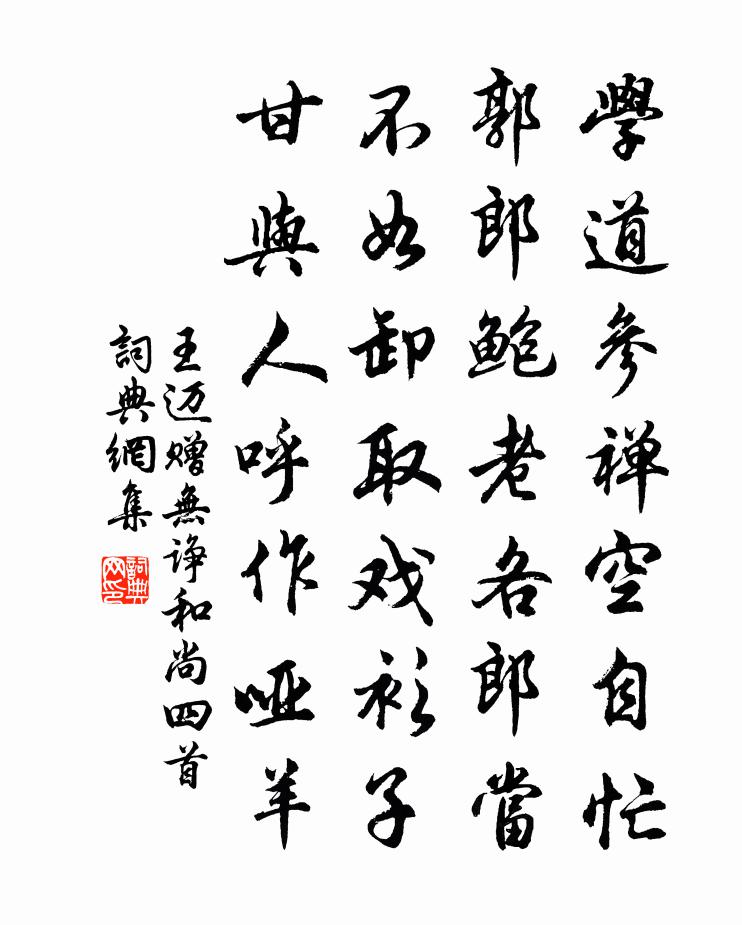 學道參禅空自忙
郭郎鲍老各郎當
不如卸取戏衫子
甘與人呼作哑羊
王迈赠無諍和尚四首
詞典網集
詞典网印